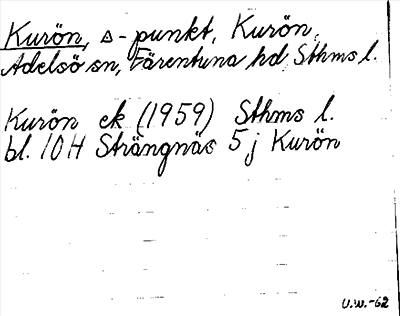 Kurön, △-punkt, Kurön,
Adelsö sn, Färentuna hd Sthms l.
Kurön ek (1959) Sthms l.
bl. 10H Strängnäs 5j Kurön
U.W.-62